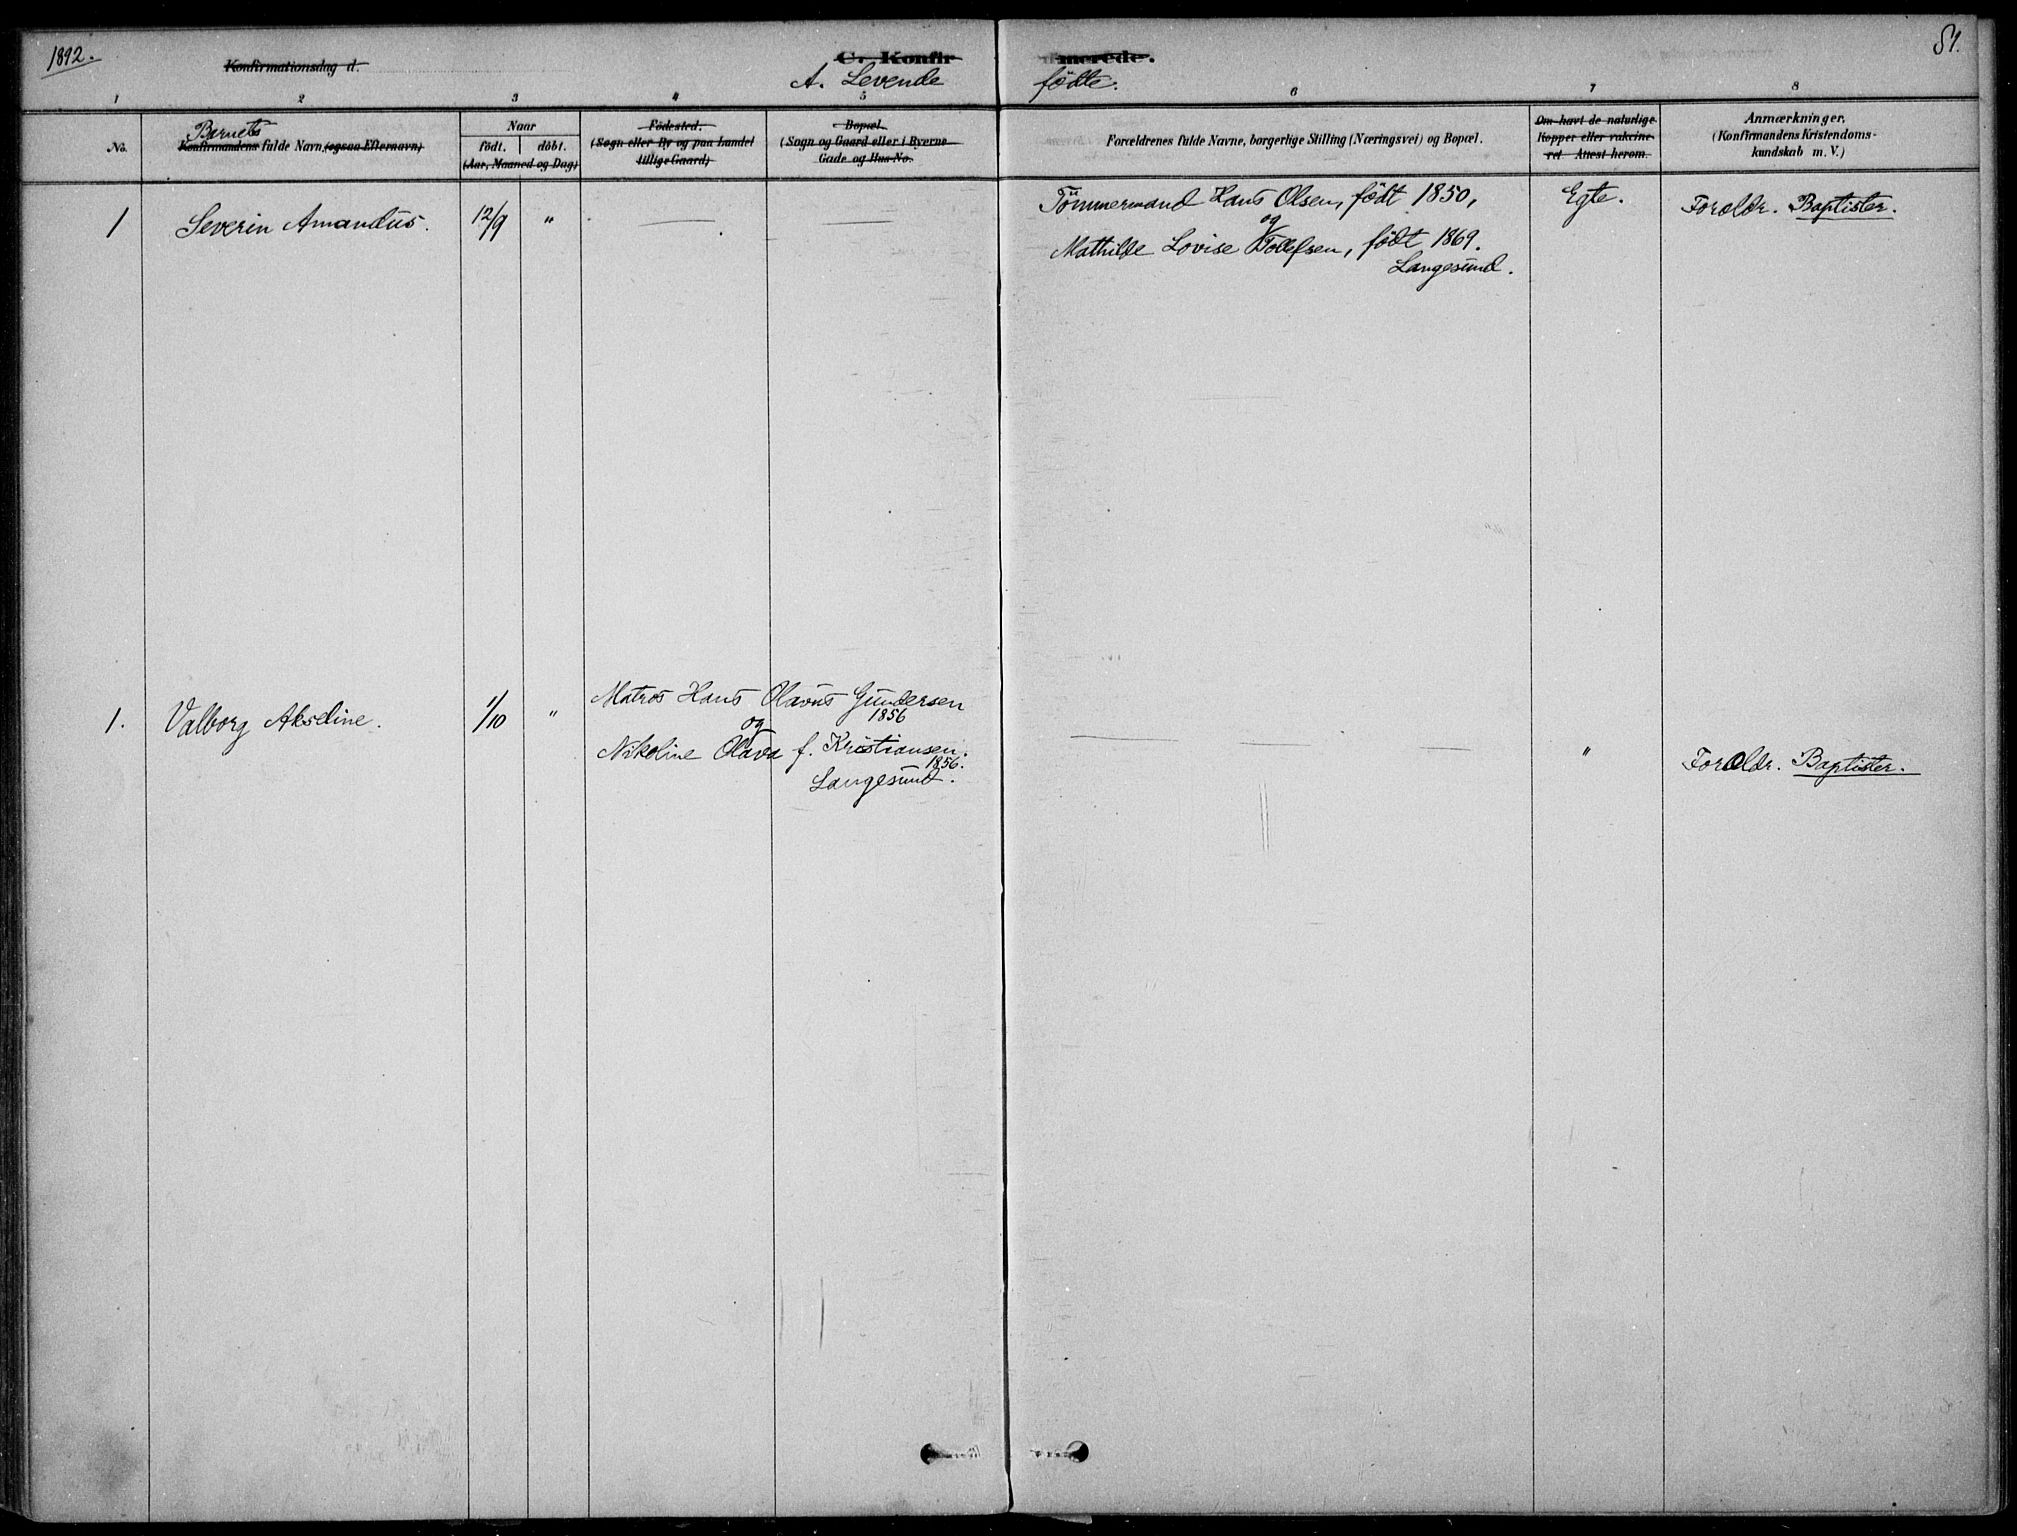 1892.
51.
Konfirmationsdag d.
C. Konfir
merede.
A. Levende
fødte.
1 2 3 4 5 6 7 8
No.
Barnets
Konfirmandens fulde Navn (ogsaa Efternavn)
Naar
født. døbt.
(Aar, Maaned og Dag)
Fødested.
(Sogn eller By og paa Landet
tillige Gaard)
Bopæl.
(Sogn og Gaard eller i Byerne
Gade og Hus-No.
Forældrenes fulde Navne, borgerlige Stilling (Næringsvei) og Bopæl.
Om havt de naturlige
Kopper eller vakcine-
ret. Attest herom.
Anmærkninger.
(Konfirmandens Kristendoms-
kundskab m. V.)
1 Severin Amandus. 12/9 "
Tømmermand Hans Olsen, født 1850,
og
Mathilde Lovise Tollefsen, født 1869.
Langesund.
Egte.
Forældr. Baptister.
1. Valborg Akseline. 1/10 "
Matros Hans Olavus Gundersen
1856
og
Nikoline Olava f. Kristiansen.
1856.
Langesund.
"
Forældr. Baptister.